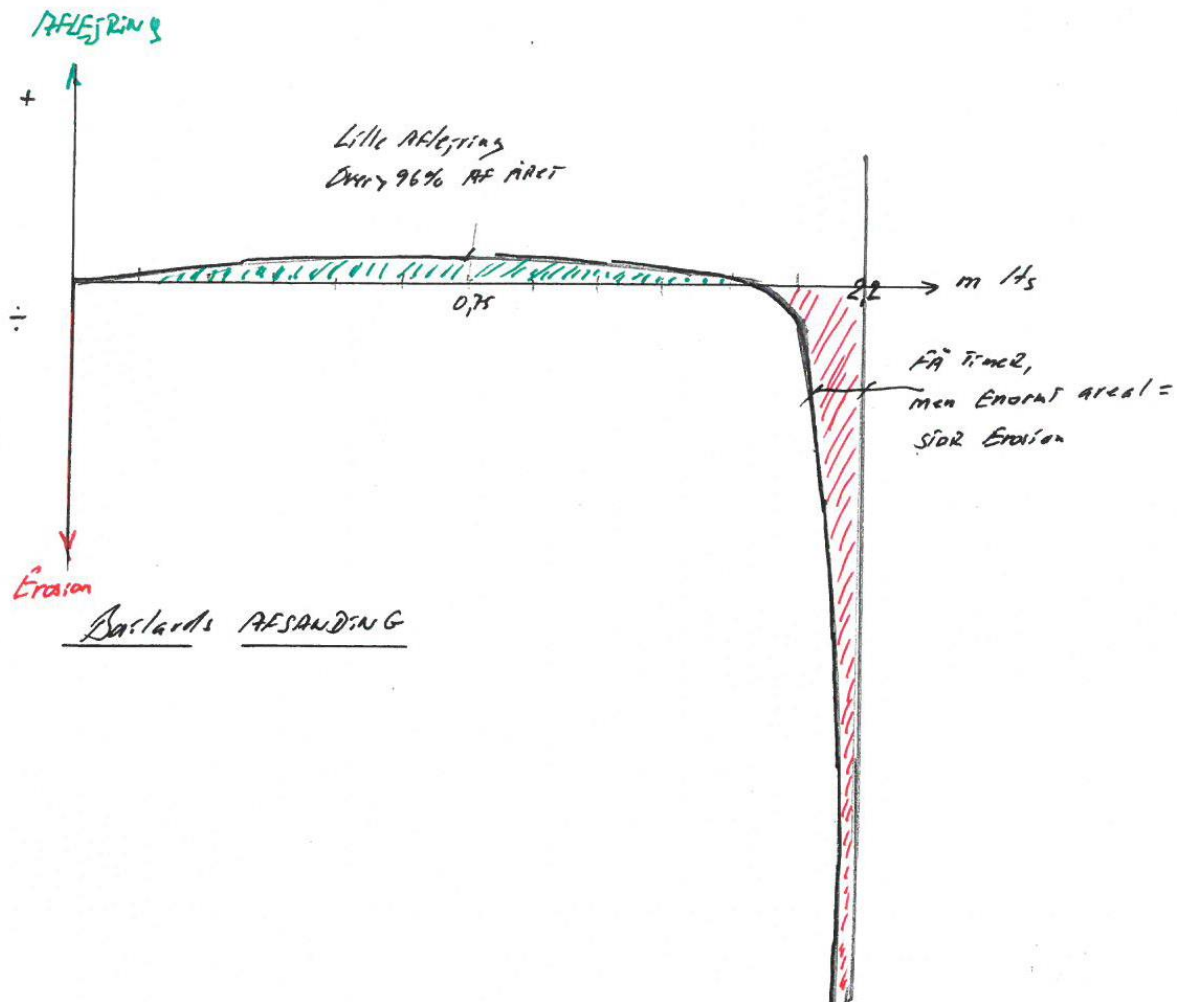 AFLEJRING
+
Lille Aflejring
Over > 96% AF ÅRET
0,75
2,2
m Hs
÷
FÅ Timer,
men Enormt areal =
STOR Erosion
Erosion
Bailards AFSANDING